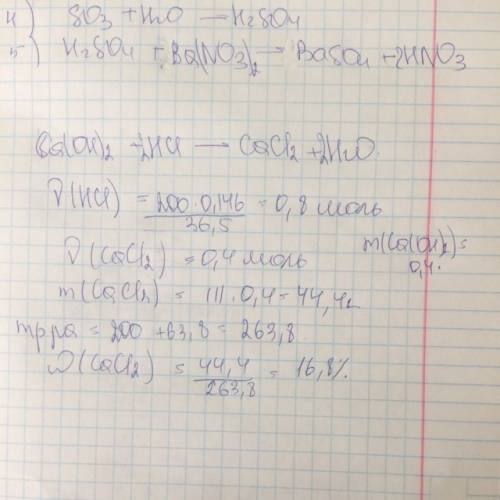 4) SO3 + H2O → H2SO4
5) H2SO4 + Ba(NO3)2 → BaSO4 + 2HNO3
Ca(OH)2 + 2HCl → CaCl2 + 2H2O
ν(HCl) = 200·0,146 / 36,5 = 0,8 моль
m(Ca(OH)2) =
ν(CaCl2) = 0,4 моль
0,4·
m(CaCl2) = 111·0,4 = 44,4г
mр-ра = 200 + 63,8 = 263,8
ω(CaCl2) = 44,4 / 263,8 = 16,8%